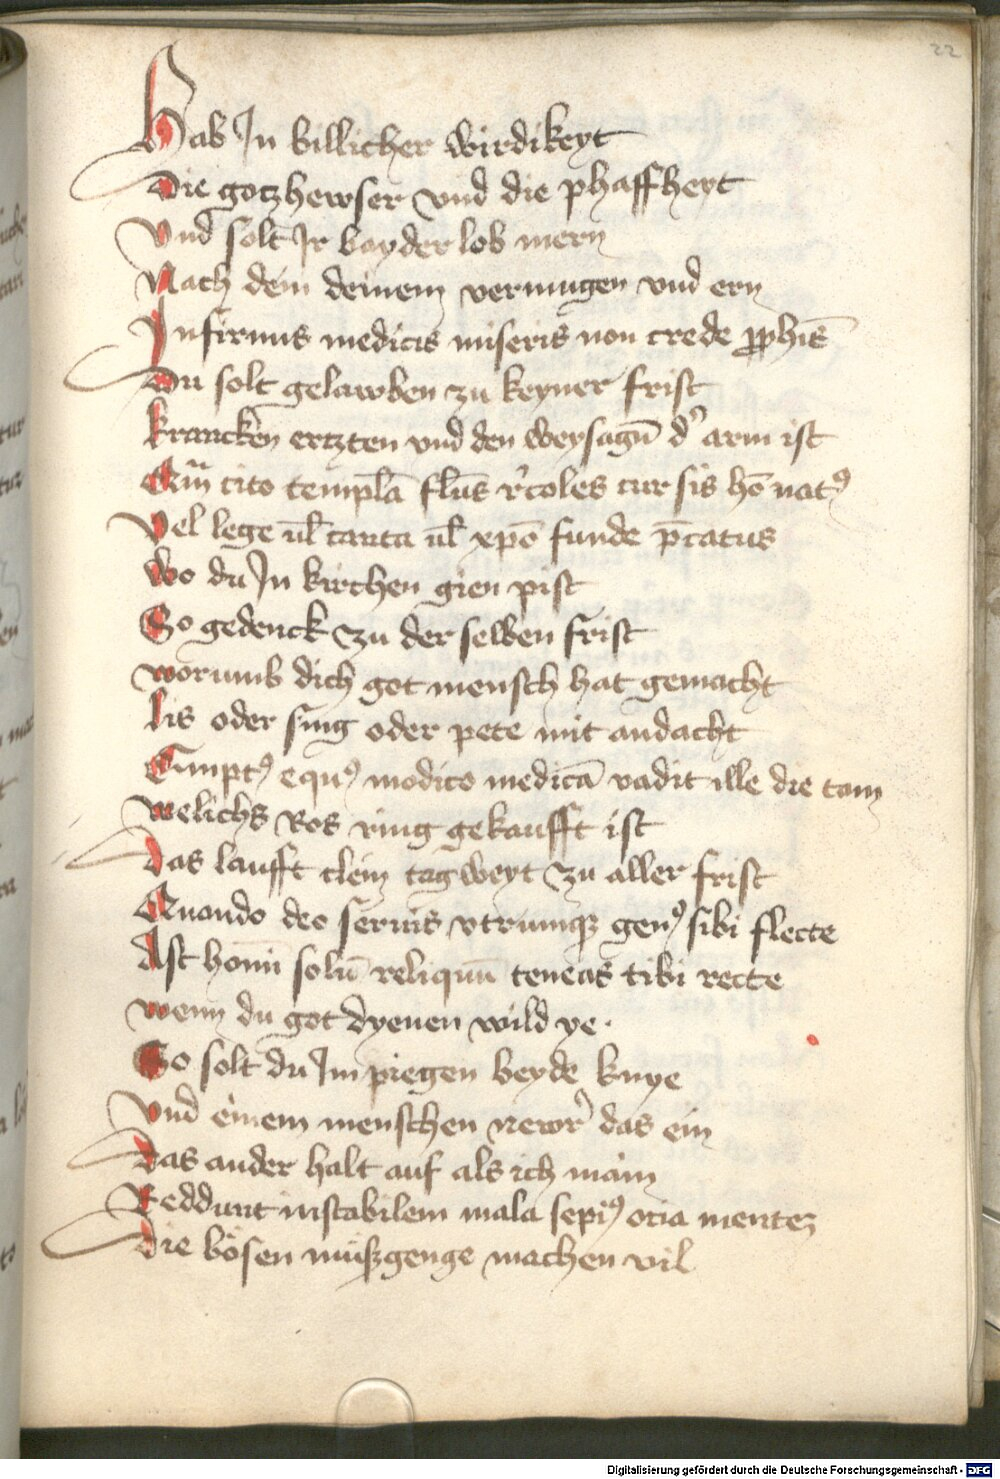 22
Hab In billicher wirdikeyt
Die gotzhewser vnd die phaffheyt
Vnd solt Ir bayder lob mern
Nach dem deinem vermugen vnd ern
Infirmis medicis miseris non crede ꝓphīs
Du solt gelawben zu keyner frist
krancken ertzten vnd den weysagn̄ d' arm ist
Cum cito templā flūs rͨcoles cur sis hō natꝰ
Vel lege ul̄ canta ul̄ xpō funde p̄catus
Wo du In kirchen gien pist
So gedenck zu der selben frist
worumb dich got mensch hat gemacht
lis oder sing oder pete mit andacht
Emptꝰ equꝰ modico medicā vadit ille die tam
welichs Ros ring gekaufft ist
Das laufft clein tagweyt zu aller frist
Quando deo seruis vtrumqꝫ genꝰ sibi flecte
Ast homī solū reliquū teneas tibi recte
wenn du got dyenen wild ye.
So solt du Im piegen beyde knye
Vnd einem menschen newr das ein
Das ander halt auf als ich main
Reddunt instabilem mala sepiꝰ otia mentez
Die bösen müßgenge machen vil
Digitalisierung gefördert durch die Deutsche Forschungsgemeinschaft - DFG